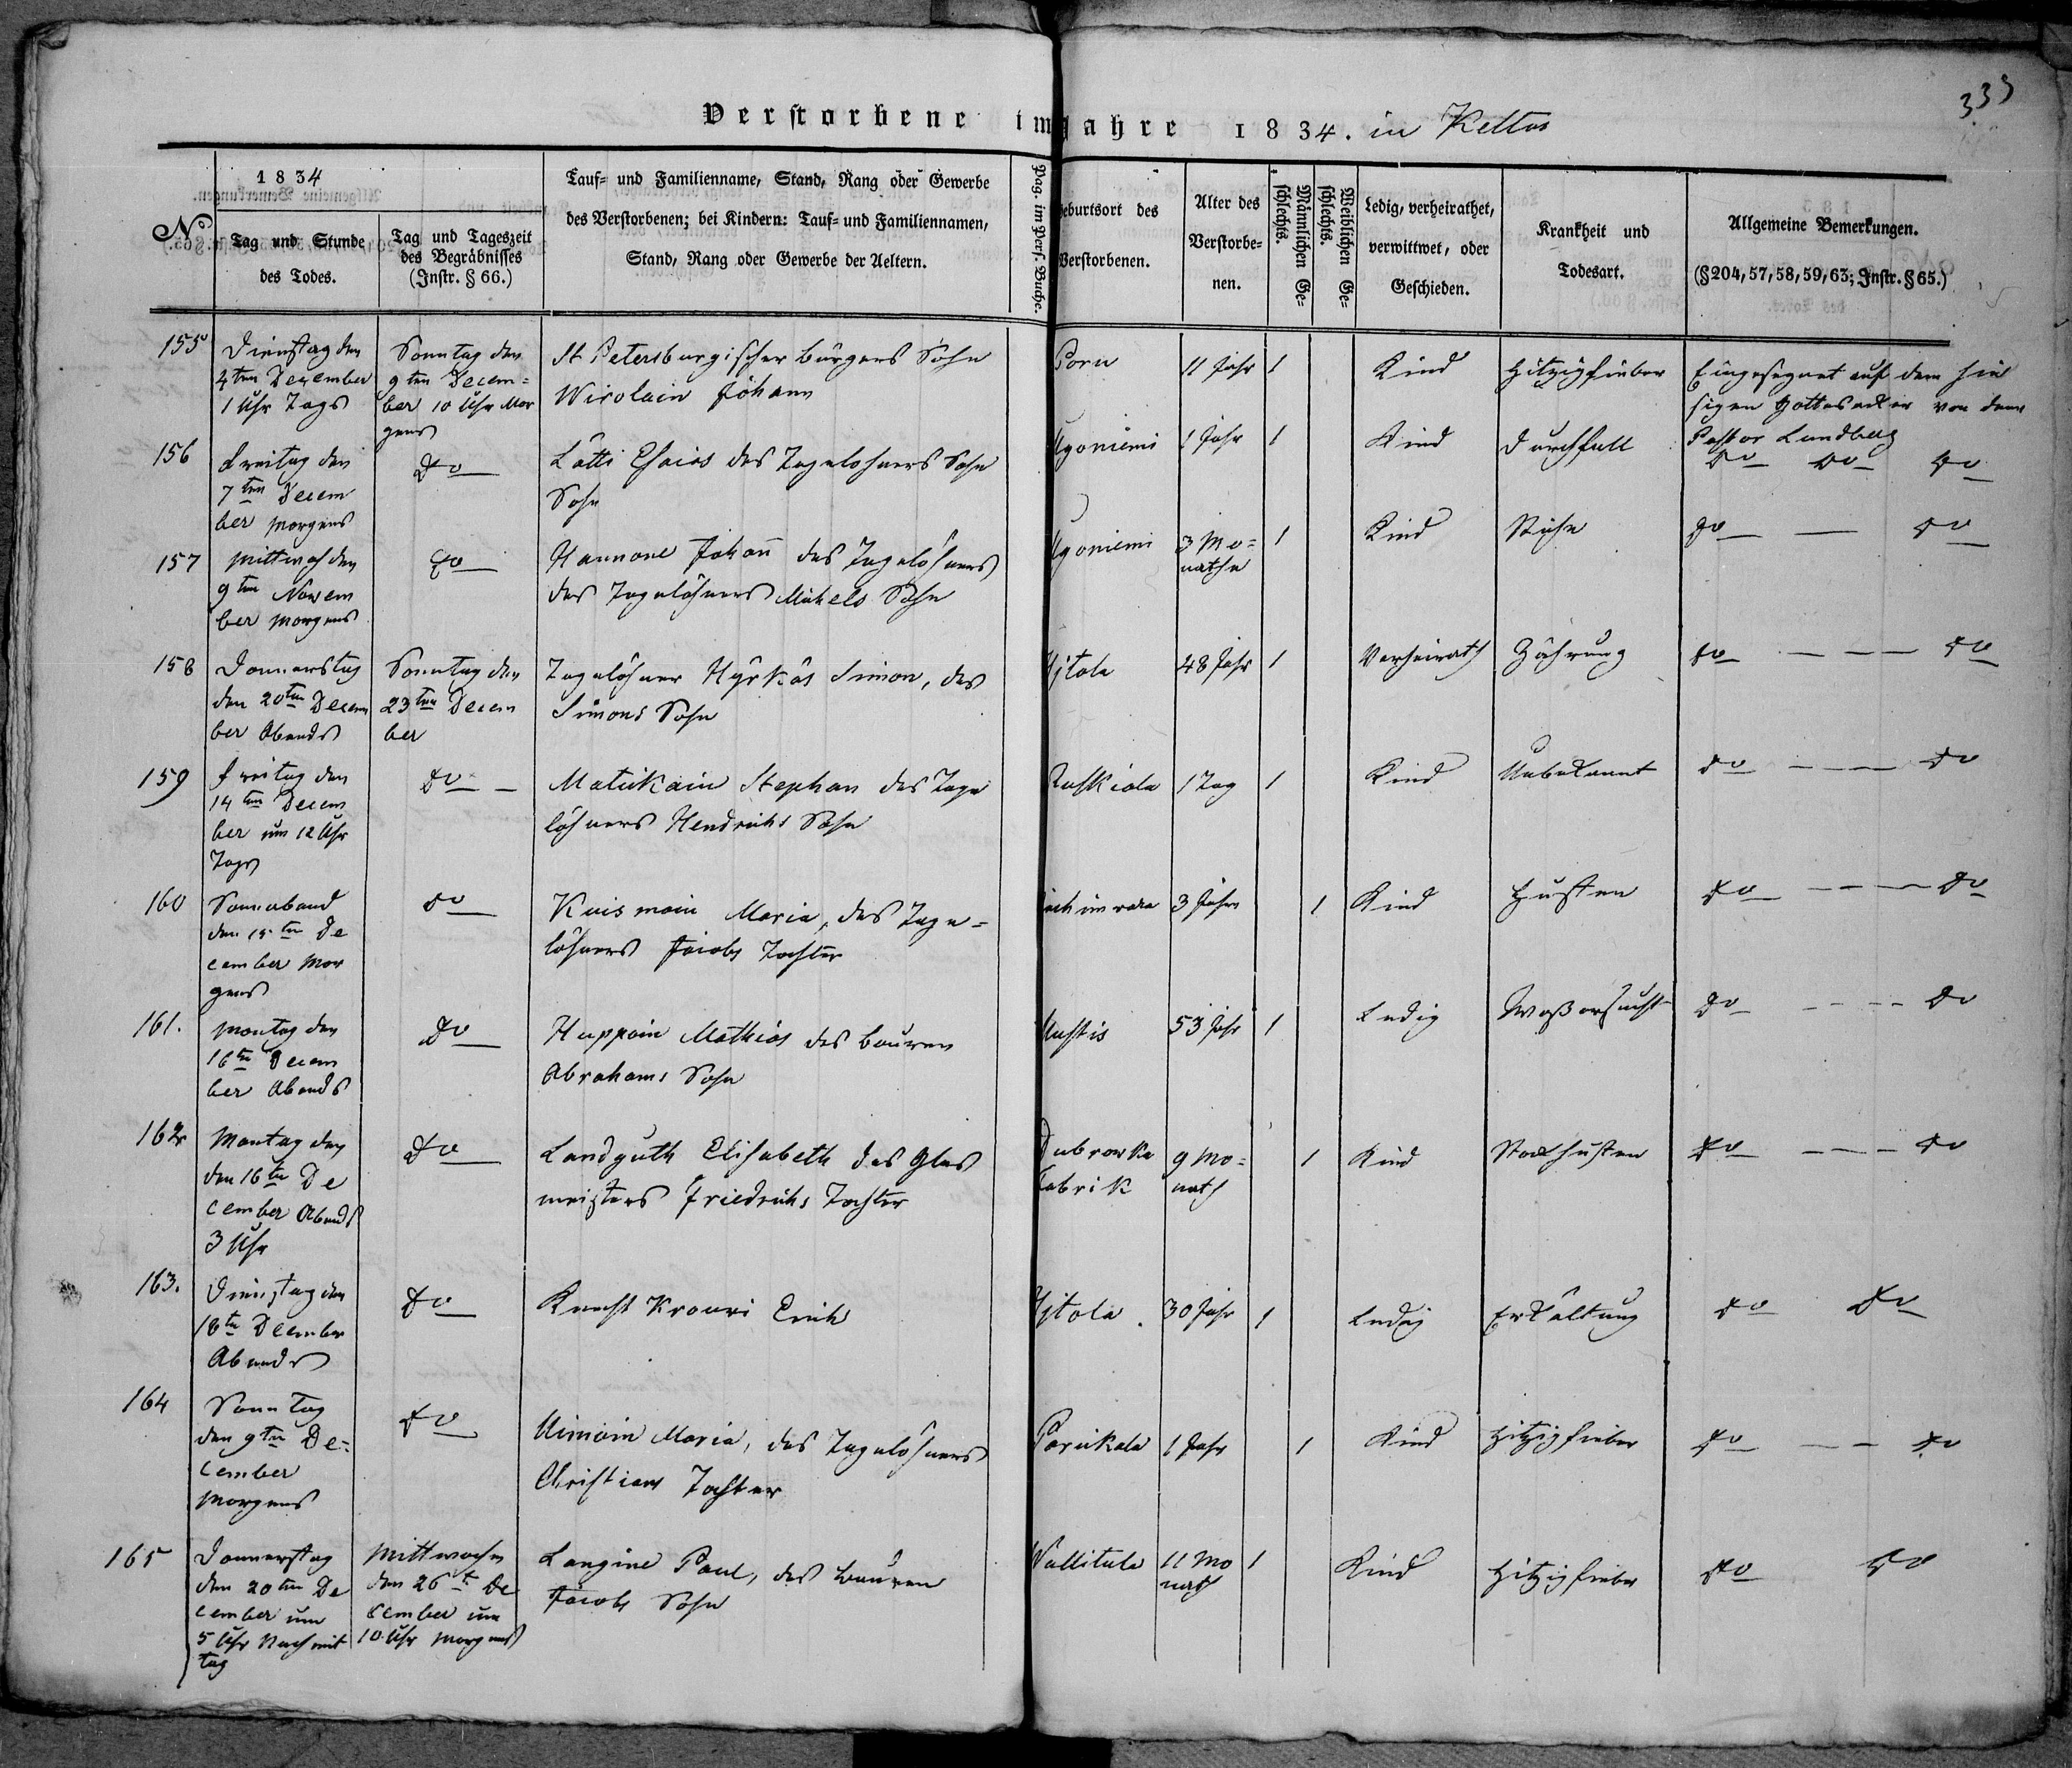 335
Verstorbene im Jahre 1834. in Keltos
No
1834
Tag und Stunde des Todes.
Tag und Tageszeit des Begräbnisses (Instr. § 66.)
Tauf- und Familienname, Stand, Rang oder Gewerbe des Verstorbenen; bei Kindern: Tauf- und Familiennamen, Stand, Rang oder Gewerbe der Aeltern.
Pag. im Pers. Buche.
Geburtsort des Verstorbenen.
Alter des Verstorbenen.
Männlichen Geschlechts.
Weiblichen Geschlechts.
Ledig, verheirathet, verwittwet, oder Geschieden.
Krankheit und Todesart.
Allgemeine Bemerkungen. (§ 204, 57, 58, 59, 63; Instr. § 65.)
155 Dienstag den 4ten December 1 Uhr Tags
Sonntag den 9ten Decem=ber 10 Uhr Morgens
St Petersburgischer Bürgers Sohn Wirolain Johann
Porn 11 Jahr 1 Kind Hitzigfieber
Eingesegnet auf dem hiesigen Gottesacker von dem Pastor Landberg
156 Freitag den 7ten December Morgens
Do
Lätti Esaias des Tagelohners Sohn Sohn
Ugoniemi 1 Jahr 1 Kind Durchfall Do Do Do
157 Mittwoch den 9ten November Morgens
Do
Hannone Johan des Tagelöhners des Tagelöhners Mikels Sohn
Ugoniemi 3 Mo=nathe 1 Kind Do — Do
158 Donnerstag den 20ten December Abends
Sonntag den 23ten December
Tagelöhner Hyrkäs Simon, des Simons Sohn
Hjtola 48 Jahr 1 Verheirath Zährung Do — — Do
159 Freitag den 14ten December um 12 Uhr Tags
Do
Matikain Stephan des Tagelöhners Hendrichs Sohn
Ruskiala 1 Tag 1 Kind Unbekannt Do — — Do
160 Sonnabend den 15ten December Morgens
Do
Kuismain Maria, des Tage=löhners Jacobs Tochter
3 Jahr 1 Kind Husten Do — — Do
161. Montag den 16te December Abends
Do
Huppoin Mathias des Bauren Abrahams Sohn
53 Jahr 1 Ledig Waßersucht Do — — Do
162 Montag den den 16te December Abends 3 Uhr
Do
Landguth Elisabeth des Glas meisters Friedrichs Tochter
Dubrowka Fabrik 9 Mo=nath 1 Kind Stockhusten Do — — Do
163. Dienstag den 18te December Abends
Do
Knecht Krouvi Erik
Hjtola. 30 Jahr 1 Ledig Erkältung Do Do
164 Sonntag den 9ten De=cember Morgens
Do
Uimoin Maria, des Tagelöhners Christians Tochter
Parikala 1 Jahr 1 Kind Hitzigfieber Do — — Do
165 Donnerstag den 20ten December um 5 Uhr Nachmittag
Mittwochs den 26te December um 10 Uhr Morgens
Langine Paul, des Bauren Jacobs Sohn
Wallitula 11 Monath 1 Kind Hitzigfieber Do Do